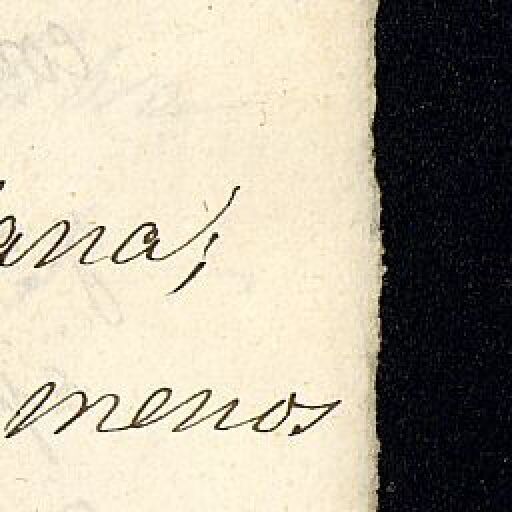 ana;
menos